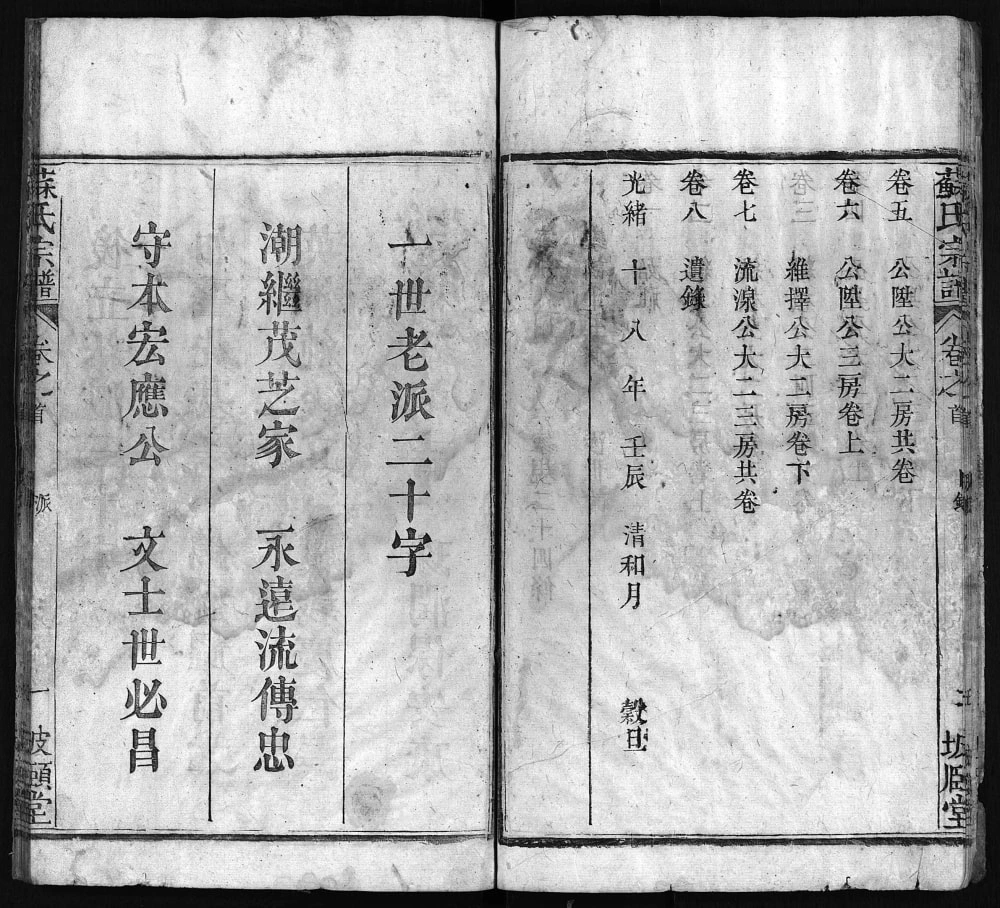 蘇氏宗譜 卷之首
卷五 公陞公大二房共卷
卷六 公陞公三房卷上
維擇公大二房卷下
卷七 流湶公大二三房共卷
卷八 遺錄
光緒十八年壬辰清和月 穀旦
一世老派二十字
潮繼茂芝家 永遠流傳忠
守本宏應公 文士世必昌
蘇氏宗譜 卷之首 派 一 坡頤堂